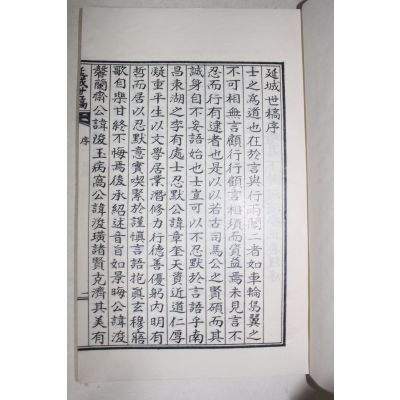 延城世稿序
士之爲道也在於言與行而闕二者如車輪鳥翼之
不可相無言顧行行顧言相須而資益焉未見言不
忍而行有逮者也是以以若古司馬公之賢碩而其
誠身自不妄語始也士豈可以不忍默於言語乎南
昌東湖之李有處士忍默公諱章奎天資近道仁厚
凝重平生以文學居業潛修力行德善優躬內明有
哲而居以忍默意實喫緊於謹愼言語抱眞玄穆寤
歌自樂甘終不悔焉後承紹述音旨如景晦公諱浚
馨蘭齋公諱浚玉病窩公諱浚璜諸賢克濟其美有
延城世稿 序 一